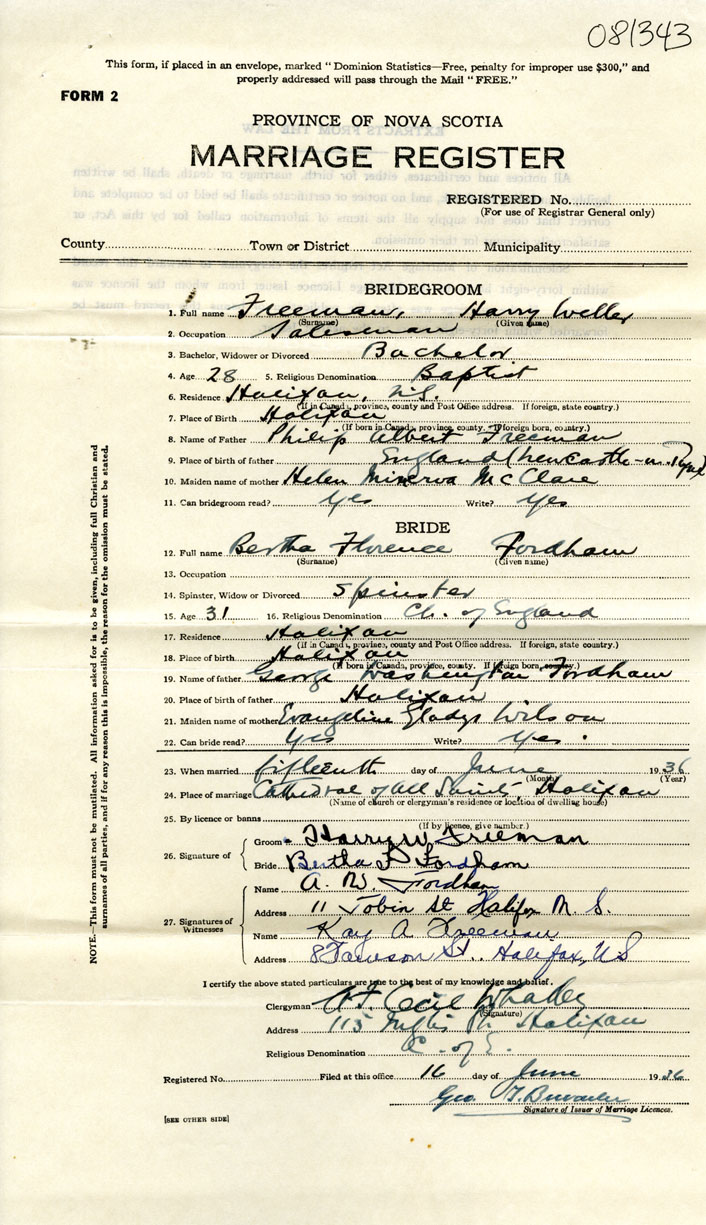 081343
This form, if placed in an envelope, marked "Dominion Statistics—Free, penalty for improper use $300," and
properly addressed will pass through the Mail "FREE."
FORM 2
PROVINCE OF NOVA SCOTIA
MARRIAGE REGISTER
REGISTERED No.
(For use of Registrar General only)
County Town or District Municipality
BRIDEGROOM
1. Full name Freeman, Harry Weller
(Surname) (Given name)
2. Occupation Salesman
3. Bachelor, Widower or Divorced Bachelor
4. Age 28 5. Religious Denomination Baptist
6. Residence Halifax, N.S.
(If in Canada, province, county and Post Office address. If foreign, state country.)
7. Place of Birth Halifax
(If born in Canada, province, county. If foreign born, country.)
8. Name of Father Philip Albert Freeman
9. Place of birth of father England (Newcastle-on-Tyne)
10. Maiden name of mother Helen Minerva McClare
11. Can bridegroom read? Yes Write? Yes
BRIDE
12. Full name Bertha Florence Fordham
(Surname) (Given name)
13. Occupation
14. Spinster, Widow or Divorced Spinster
15. Age 31 16. Religious Denomination Ch. of England
17. Residence Halifax
(If in Canada, province, county and Post Office address. If foreign, state country.)
18. Place of birth Halifax
(If born in Canada, province, county. If foreign born, country.)
19. Name of father George Washington Fordham
20. Place of birth of father Halifax
21. Maiden name of mother Evangeline Gladys Wilson
22. Can bride read? Yes Write? Yes.
23. When married fifteenth day of June 1936
(Month) (Year)
24. Place of marriage Cathedral of All Saints, Halifax
(Name of church or clergyman's residence or location of dwelling house)
25. By licence or banns
(If by licence, give number.)
26. Signature of
Groom Harry W Freeman
Bride Bertha F Fordham
27. Signatures of Witnesses
Name A. W. Fordham
Address 11 Tobin St Halifax N. S.
Name Kay A Freeman
Address 8 Dawson St. Halifax, NS
I certify the above stated particulars are true to the best of my knowledge and belief.
Clergyman Cecil Whalley
(Signature)
Address 115 Halifax
Religious Denomination C. of E.
Registered No. Filed at this office 16 day of June 1936
Geo.
Signature of Issuer of Marriage Licences.
[SEE OTHER SIDE]
NOTE.—This form must not be mutilated. All information asked for is to be given, including full Christian and
surnames of all parties, and if for any reason this is impossible, the reason for the omission must be stated.